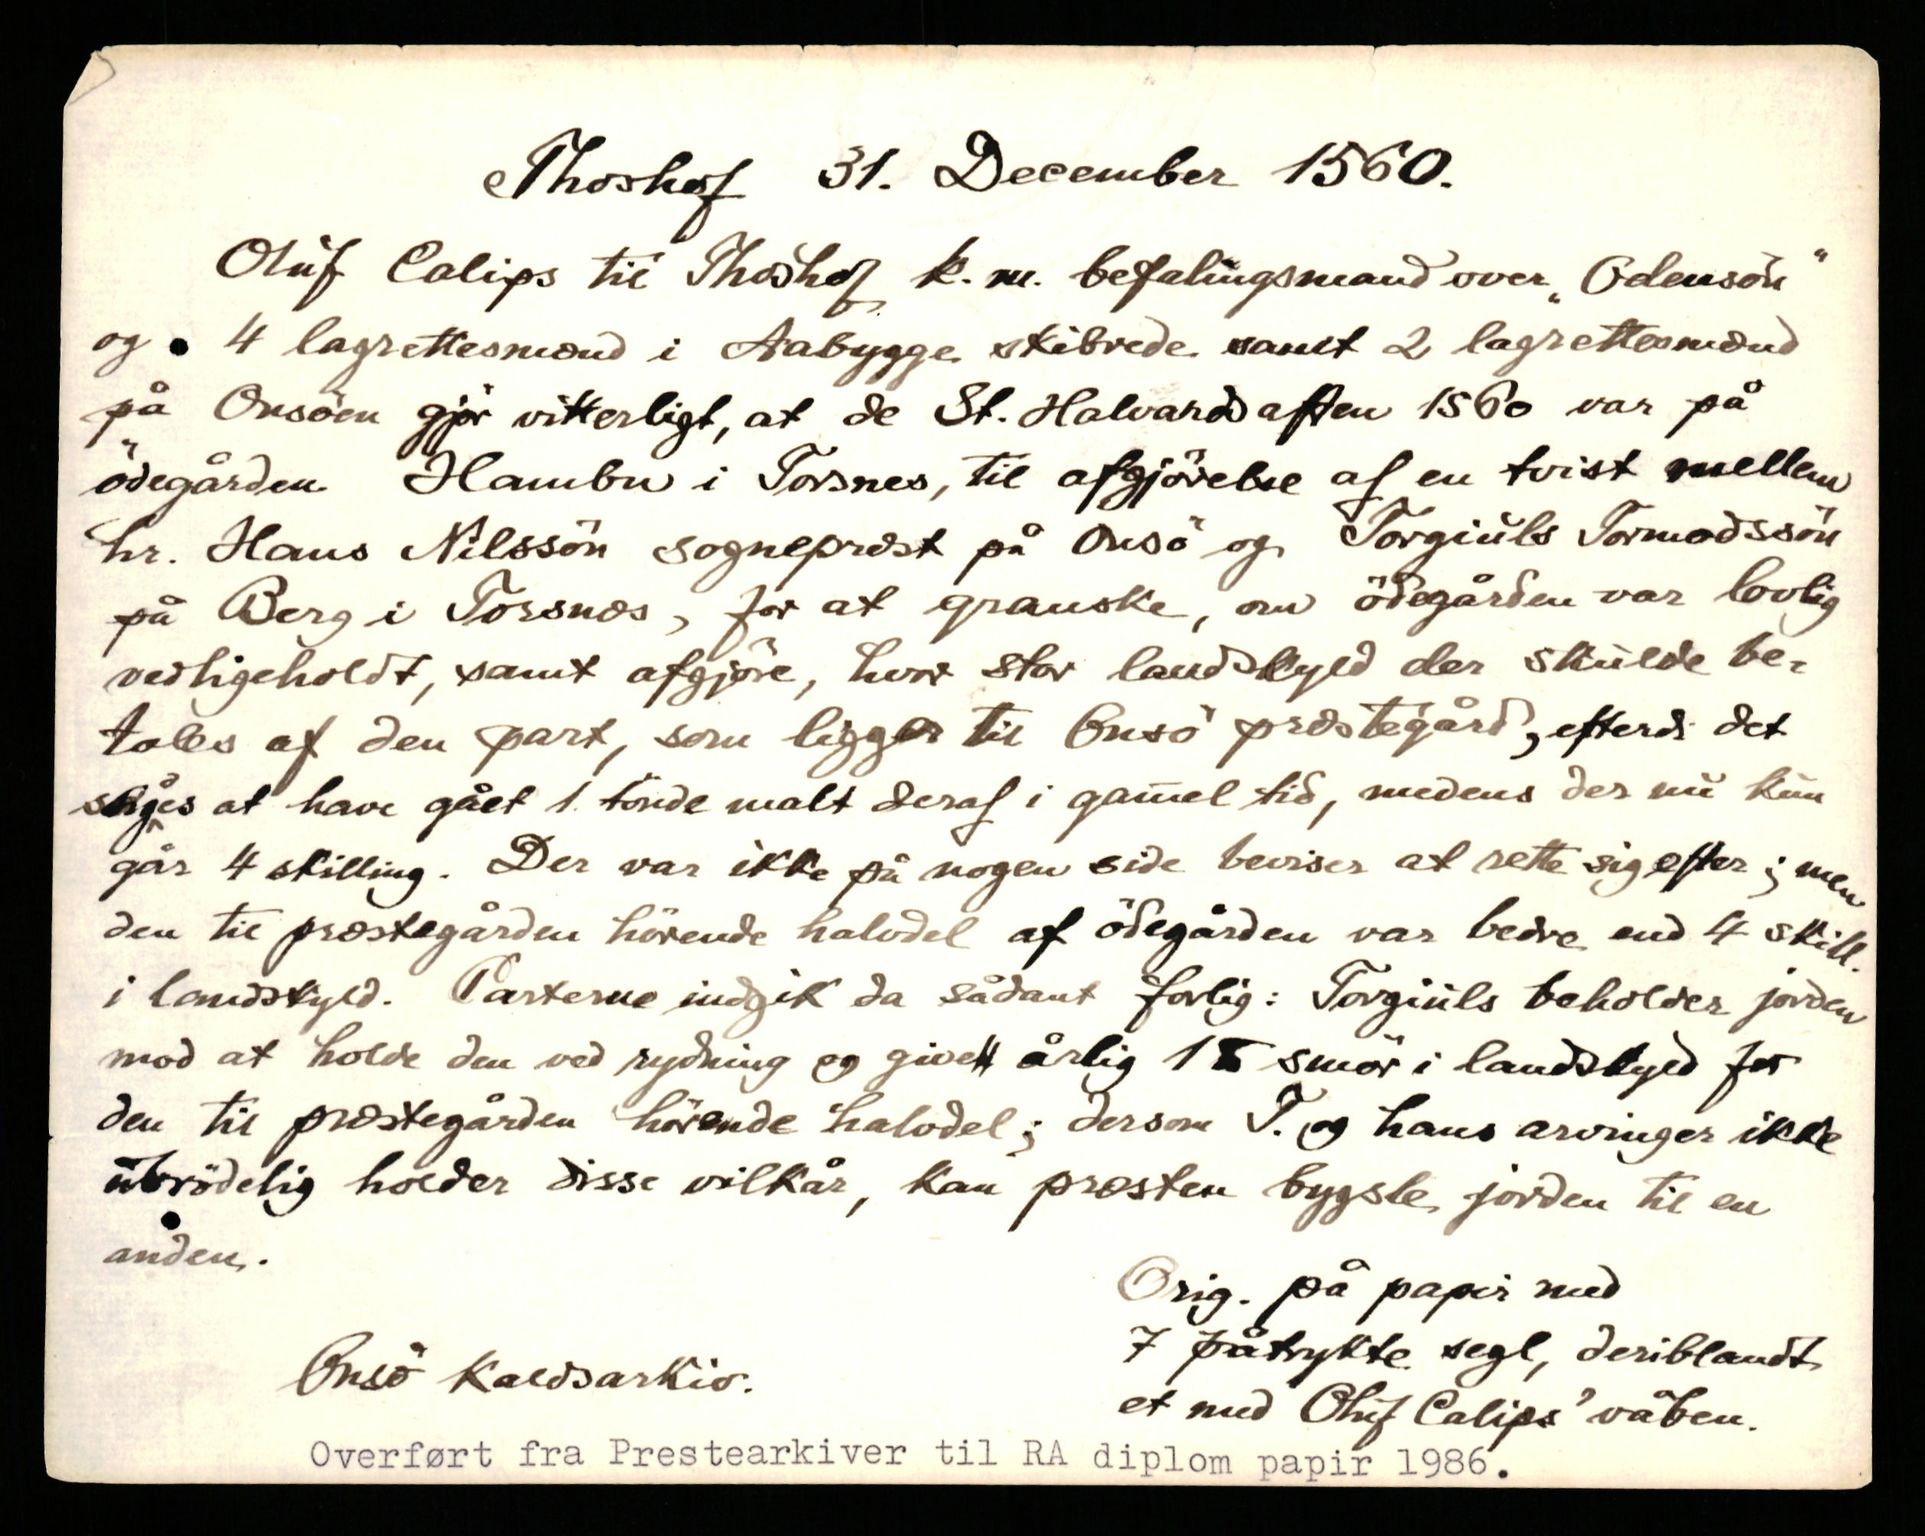 Thoshof 31. December 1560.
Oluf Calips til Thoshof k. m. befalingsmand over „Odensön“
og 4 lagrettesmænd i Aabygge skibrede samt 2 lagrettesmænd
på Onsöen gjör vitterligt, at de St. Halvards aften 1560 var på
ödegården Hambu i Torsnes, til afgjörelse af en tvist mellem
hr. Hans Nilssön sogneprest på Onsö og Torgiuls Tormodssön
på Berg i Torsnæs, for at granske, om ödegården var lovlig
vedligeholdt, samt afgjöre, hvor stor landskyld der skulde be-
tales af den part, som ligger til Onsö præstegård, efterdi det
siges at have gået 1 tönde malt deraf i gam̄el tid, medens der nu kun
går 4 skilling. Der var ikke på nogen side beviser at rette sig efter; men
den til præstegården hörende halvdel af ödegården var bedre end 4 skill.
i landskyld. Parterne indgik da sådant forlig: Torgiuls beholder jorden
mod at holde den ved rydning og give årlig 1 smör i landskyld for
den til præstegården hörende halvdel; dersom T. og hans arvinger ikke
ubrödelig holder disse vilkår, kan præsten bygsle jorden til en
anden.
Orig. på papir med
7 påtrykte segl, deriblandt
et med Oluf Calips' våben.
Onsö Kaldsarkiv.
Overført fra Prestearkiver til RA diplom papir 1986.